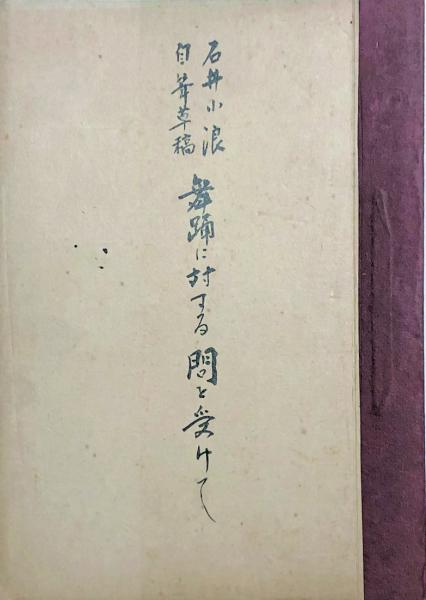 石井小浪
自筆草稿
舞踊に対する問を受けて